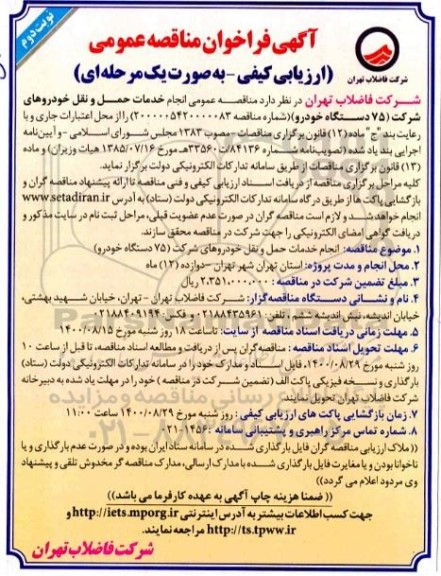 نوبت دوم
آگهی فراخوان مناقصه عمومی
(ارزیابی کیفی - به صورت یک مرحله ای)
شرکت فاضلاب تهران
شرکت فاضلاب تهران در نظر دارد مناقصه عمومی انجام خدمات حمل و نقل خودروهای
شرکت (۷۵ دستگاه خودرو)(شماره مناقصه ۲۰۰۰۰۰۵۴۲۰۰۰۰۰۸۳) را از محل اعتبارات جاری و با
رعایت بند "ج" ماده (۱۲) قانون برگزاری مناقصات - مصوب ۱۳۸۳ مجلس شورای اسلامی - و آیین‌نامه
اجرایی بند یاد شده (تصویب‌نامه شماره ۸۴۱۳۶/ت۳۳۵۶۰هـ مورخ ۱۳۸۵/۰۷/۱۶ هیات وزیران) و ماده
(۱۳) قانون برگزاری مناقصات از طریق سامانه تدارکات الکترونیکی دولت برگزار نماید.
کلیه مراحل برگزاری مناقصه از دریافت اسناد ارزیابی کیفی و فنی مناقصه تا ارائه پیشنهاد مناقصه گران و
بازگشایی پاکت ها از طریق درگاه سامانه تدارکات الکترونیکی دولت (ستاد) به آدرس www.setadiran.ir
انجام خواهد شد و لازم است مناقصه گران در صورت عدم عضویت قبلی، مراحل ثبت نام در سایت مذکور و
دریافت گواهی امضای الکترونیکی را جهت شرکت در مناقصه محقق سازند.
۱. موضوع مناقصه: انجام خدمات حمل و نقل خودروهای شرکت (۷۵ دستگاه خودرو)
۲. محل انجام و مدت پروژه: استان تهران شهر تهران - دوازده (۱۲) ماه
۳. مبلغ تضمین شرکت در مناقصه: ۲،۳۵۱،۰۰۰،۰۰۰ ریال
۴. نام و نشانی دستگاه مناقصه‌گزار: شرکت فاضلاب تهران - تهران، خیابان شهید بهشتی،
خیابان اندیشه، نبش اندیشه ششم، تلفن: ۰۲۱۸۸۴۳۵۹۶۱ و فکس: ۰۲۱۸۸۴۰۹۱۹۴
۵. مهلت زمانی دریافت اسناد مناقصه از سایت: تا ساعت ۱۸ روز شنبه مورخ ۱۴۰۰/۰۸/۱۵
۶. مهلت تحویل اسناد مناقصه: مناقصه گران پس از دریافت و مطالعه اسناد مناقصه، تا قبل از ساعت ۱۰
روز شنبه مورخ ۱۴۰۰/۰۸/۲۹، فایل اسناد و مدارک خود را در سامانه تدارکات الکترونیکی دولت (ستاد)
بارگذاری و نسخه فیزیکی پاکت الف (تضمین شرکت در مناقصه) خود را در مهلت یاد شده به دبیرخانه
شرکت فاضلاب تهران تحویل نمایند.
۷. زمان بازگشایی پاکت های ارزیابی کیفی: روز شنبه مورخ ۱۴۰۰/۰۸/۲۹ ساعت ۱۱:۰۰
۸. شماره تماس مرکز راهبری و پشتیبانی سامانه: ۰۲۱-۱۴۵۶
((ملاک ارزیابی مناقصه گران فایل بارگذاری شده در سامانه ستاد ایران بوده و در صورت عدم بارگذاری و یا
ناخوانا بودن و یا مغایرت فایل بارگذاری شده با مدارک ارسالی، مدارک مناقصه گر مخدوش تلقی و پیشنهاد
وی مردود اعلام می گردد))
((ضمنا هزینه چاپ آگهی به عهده کارفرما می باشد))
جهت کسب اطلاعات بیشتر به آدرس اینترنتی http://iets.mporg.ir و
http://ts.tpww.ir مراجعه نمایند.
شرکت فاضلاب تهران